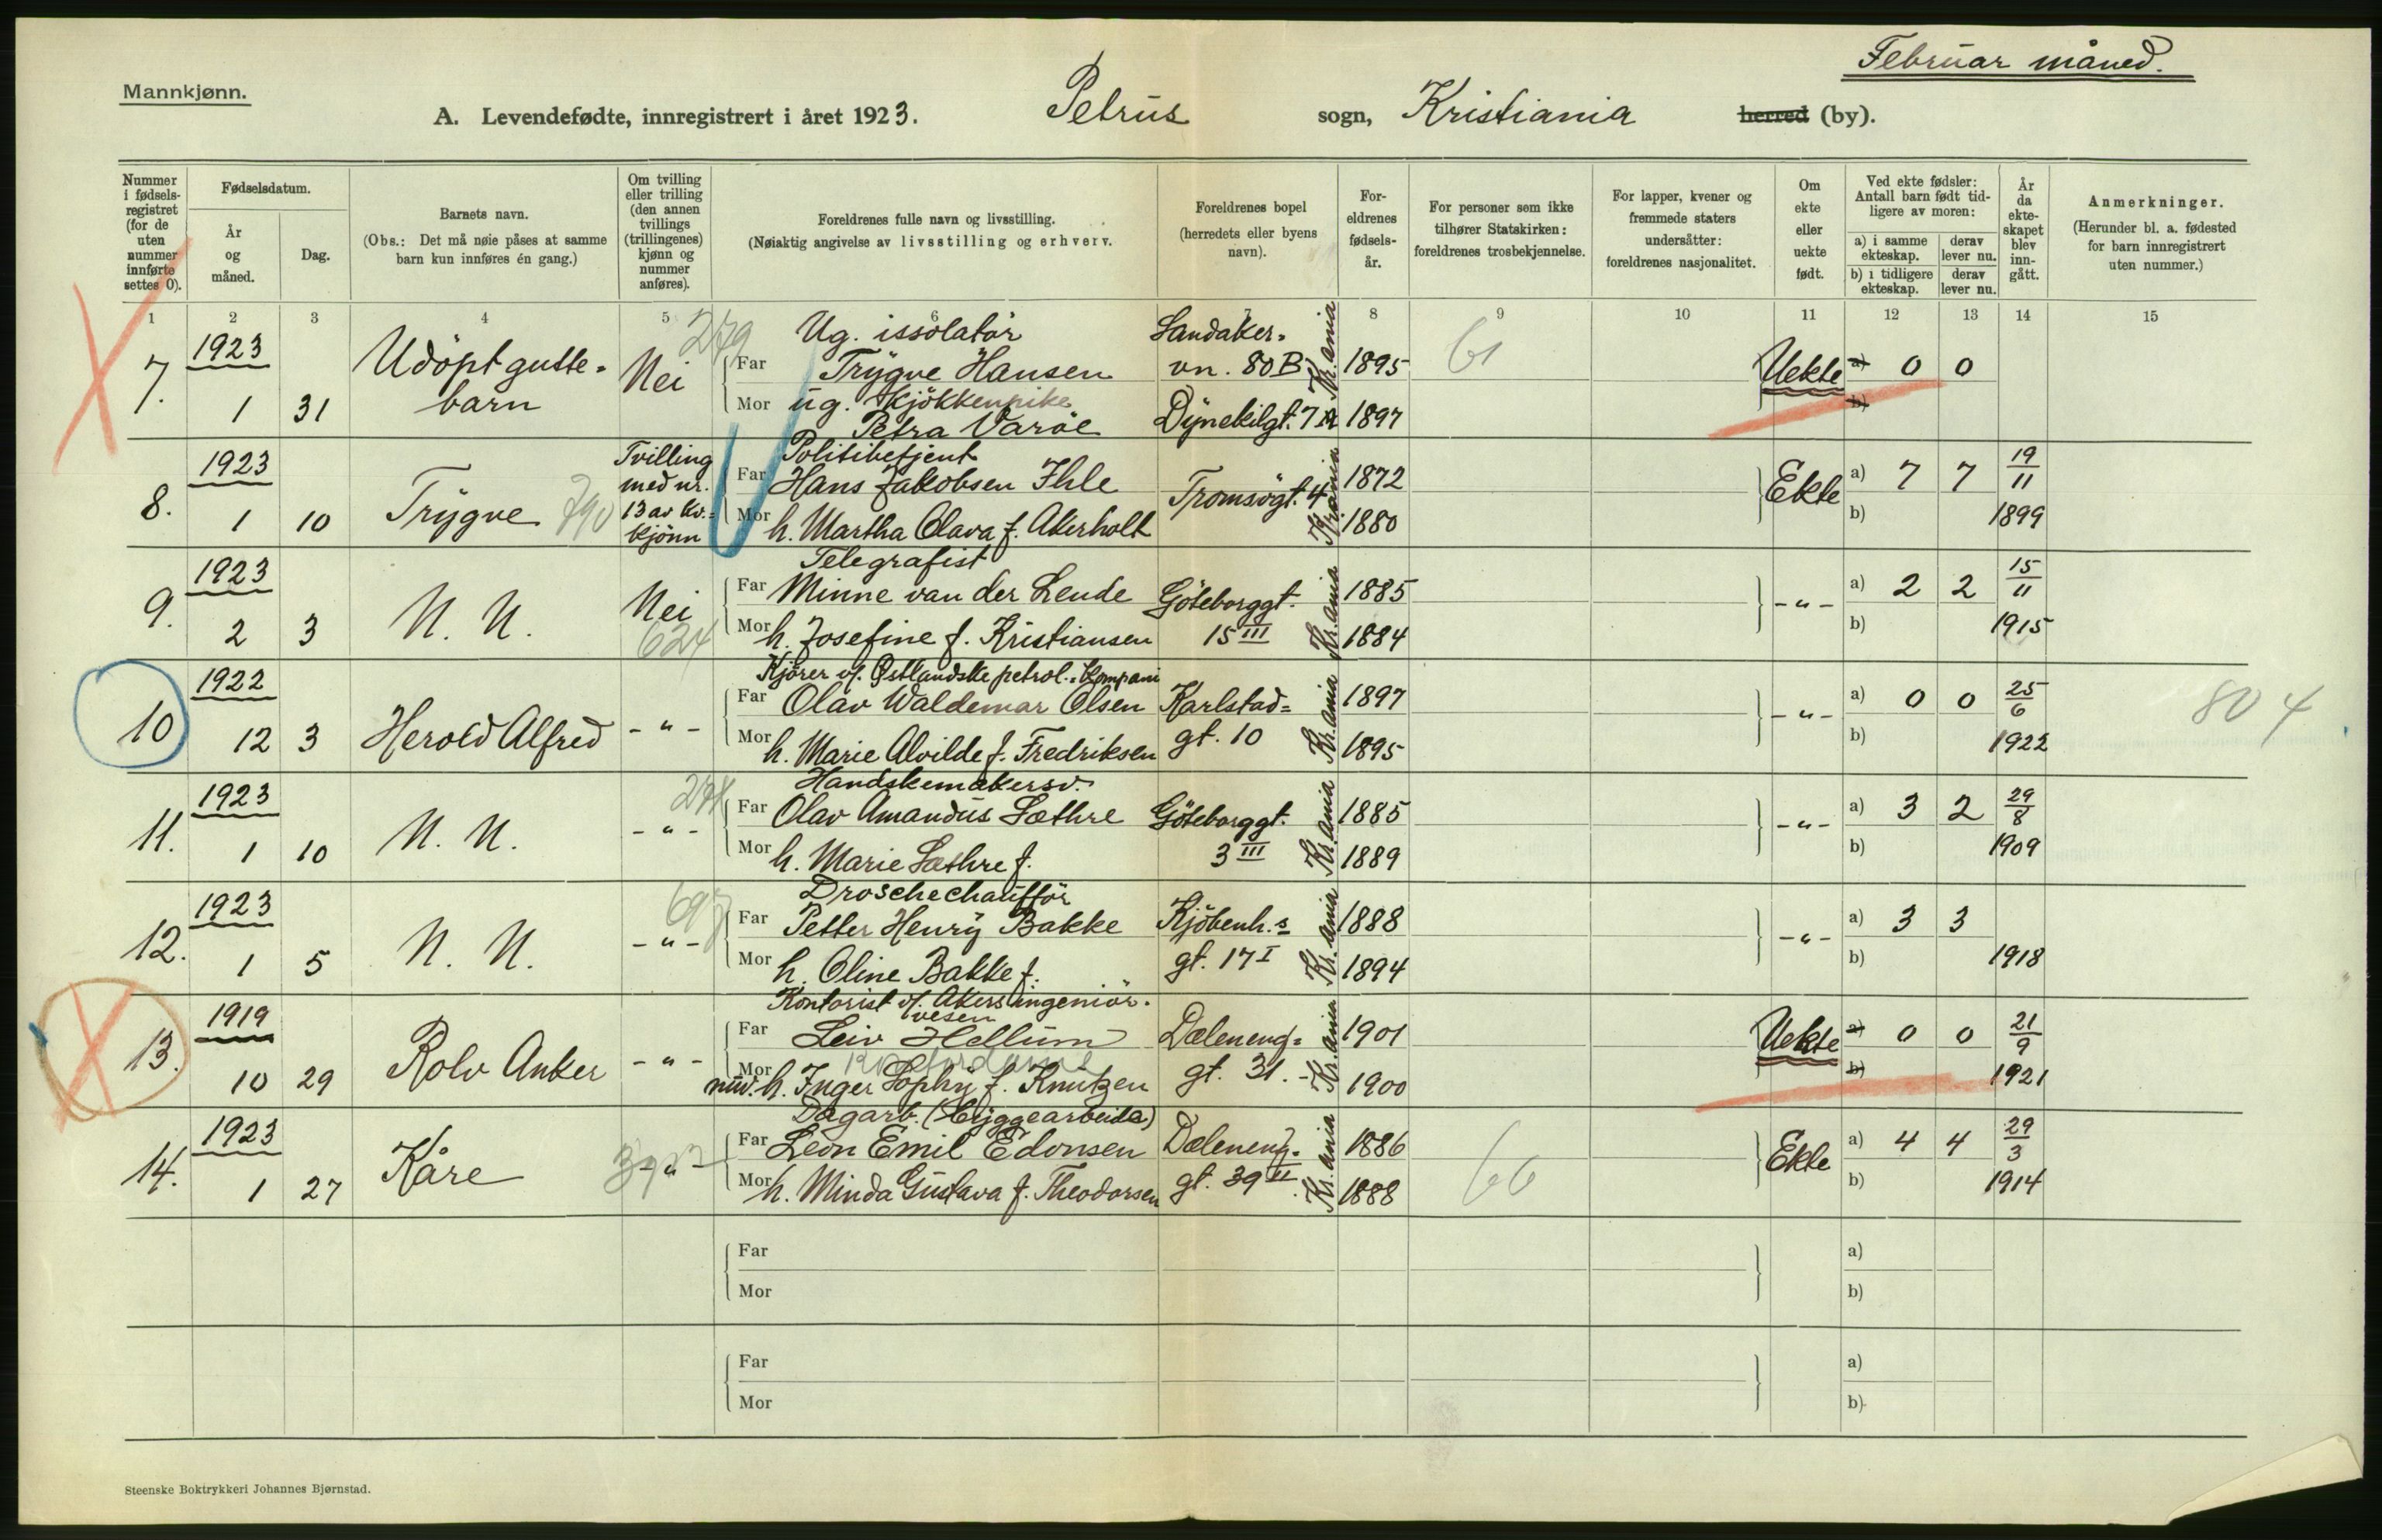 Februar måned.
Mannkjønn.
A. Levendefødte, innregistrert i året 1923. Petrus sogn, Kristiania herred (by).
Nummer i fødselsregistret (for de uten nummer innførte settes 0).
Fødselsdatum.
År og måned.
Dag.
Barnets navn.
(Obs.: Det må nøie påses at samme barn kun innføres én gang.)
Om tvilling eller trilling (den annen tvillings (trillingenes) kjønn og nummer anføres).
Foreldrenes fulle navn og livsstilling.
(Nøiaktig angivelse av livsstilling og erhverv.
Foreldrenes bopel (herredets eller byens navn).
Foreldrenes fødselsår.
For personer som ikke tilhører Statskirken: foreldrenes trosbekjennelse.
For lapper, kvener og fremmede staters undersåtter: foreldrenes nasjonalitet.
Om ekte eller uekte født.
Ved ekte fødsler: Antall barn født tidligere av moren:
a) i samme ekteskap.
derav lever nu.
b) i tidligere ekteskap.
derav lever nu.
År da ekteskapet blev inngått.
Anmerkninger.
(Herunder bl. a. fødested for barn innregistrert uten nummer.)
1 2 3 4 5 6 7 8 9 10 11 12 13 14 15
7. 1923 1 31 Udöpt guttebarn Nei 279
Ug. issolatör
Far Trygve Hansen Sandakervn. 80 B Kr.ania 1895 61 Uekte a) 0 0
Mor ug. kjökkenpike
Petra Varöe Dynekilgt. 7 A 1897 b)
8. 1923 1 10 Trygve 790 Tvilling med nr. 13 av kv.= kjönn
Politibetjent
Far Hans Jakobsen Ihle Tromsögt. 4 Kr.ania 1872 Ekte a) 7 7 19/11
Mor h. Martha Olava f. Akerholt 1880 b) 1899
9. 1923 2 3 N. N. Nei 624
Telegrafist
Far Minne van der Lende Göteborggt. Kr.ania 1885 -"- a) 2 2 15/11
Mor h. Josefine f. Kristiansen 15 III 1884 b) 1915
10 1922 12 3 Herold Alfred -"-
Kjörer v/. Østlandske petrol.=kompani
Far Olav Waldemar Olsen Karlstad= Kr.ania 1897 -"- a) 0 0 25/6 804
Mor h. Marie Alvilde f. Fredriksen gt. 10 1895 b) 1922
11. 1923 1 10 N. N. -"-
Handskemakersv.
Far Olav Amandus Sæthre Göteborggt. Kr.ania 1885 -"- a) 3 2 29/8
Mor h. Marie Sæthre f. 3 III 1889 b) 1909
12. 1923 1 5 N. N. -"-
Droschechaufför
Far Petter Henry Bakke Kjöbenh.s= Kr.ania 1888 -"- a) 3 3
Mor h. Oline Bakke f. gt. 17 I 1894 b) 1918
13. 1919 10 29 Rolv Anker -"-
Kontorist v/. Akers ingeniör.
vesen
Far Leiv Hellum Dæleneng= Kr.ania 1901 Uekte a) 0 0 21/9
Mor nuv. h. Inger Sophy f. Knutzen gt. 31. 1900 b) 1921
14. 1923 1 27 Kåre -"-
Dagarb. (byggearbeide)
Far Leon Emil Edonsen Dæleneng. Kr.ania 1886 66 Ekte a) 4 4 29/3
Mor h. Minda Gustava f. Theodorsen gt. 39 II. 1888 b) 1914
Far a)
Mor b)
Far a)
Mor b)
Steenske Boktrykkeri Johannes Bjørnstad.